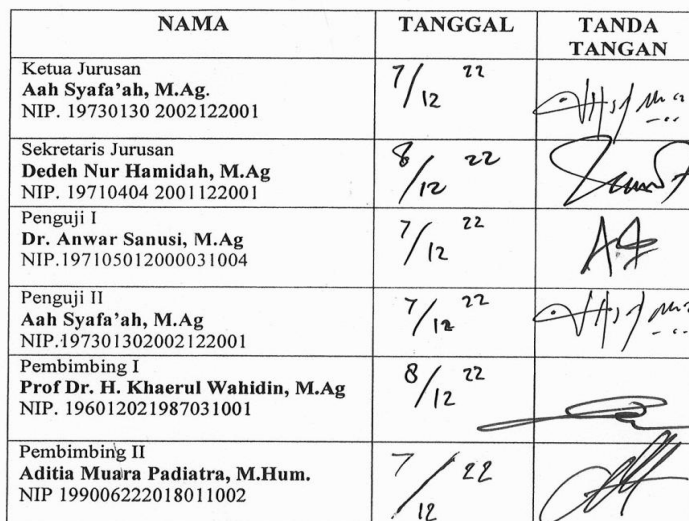 NAMA TANGGAL TANDA TANGAN
Ketua Jurusan
Aah Syafa'ah, M.Ag.
NIP. 19730130 2002122001
7/12 22
Sekretaris Jurusan
Dedeh Nur Hamidah, M.Ag
NIP. 19710404 2001122001
8/12 22
Penguji I
Dr. Anwar Sanusi, M.Ag
NIP.197105012000031004
7/12 22
Penguji II
Aah Syafa'ah, M.Ag
NIP.197301302002122001
7/12 22
Pembimbing I
Prof Dr. H. Khaerul Wahidin, M.Ag
NIP. 196012021987031001
8/12 22
Pembimbing II
Aditia Muara Padiatra, M.Hum.
NIP 199006222018011002
7/12 22